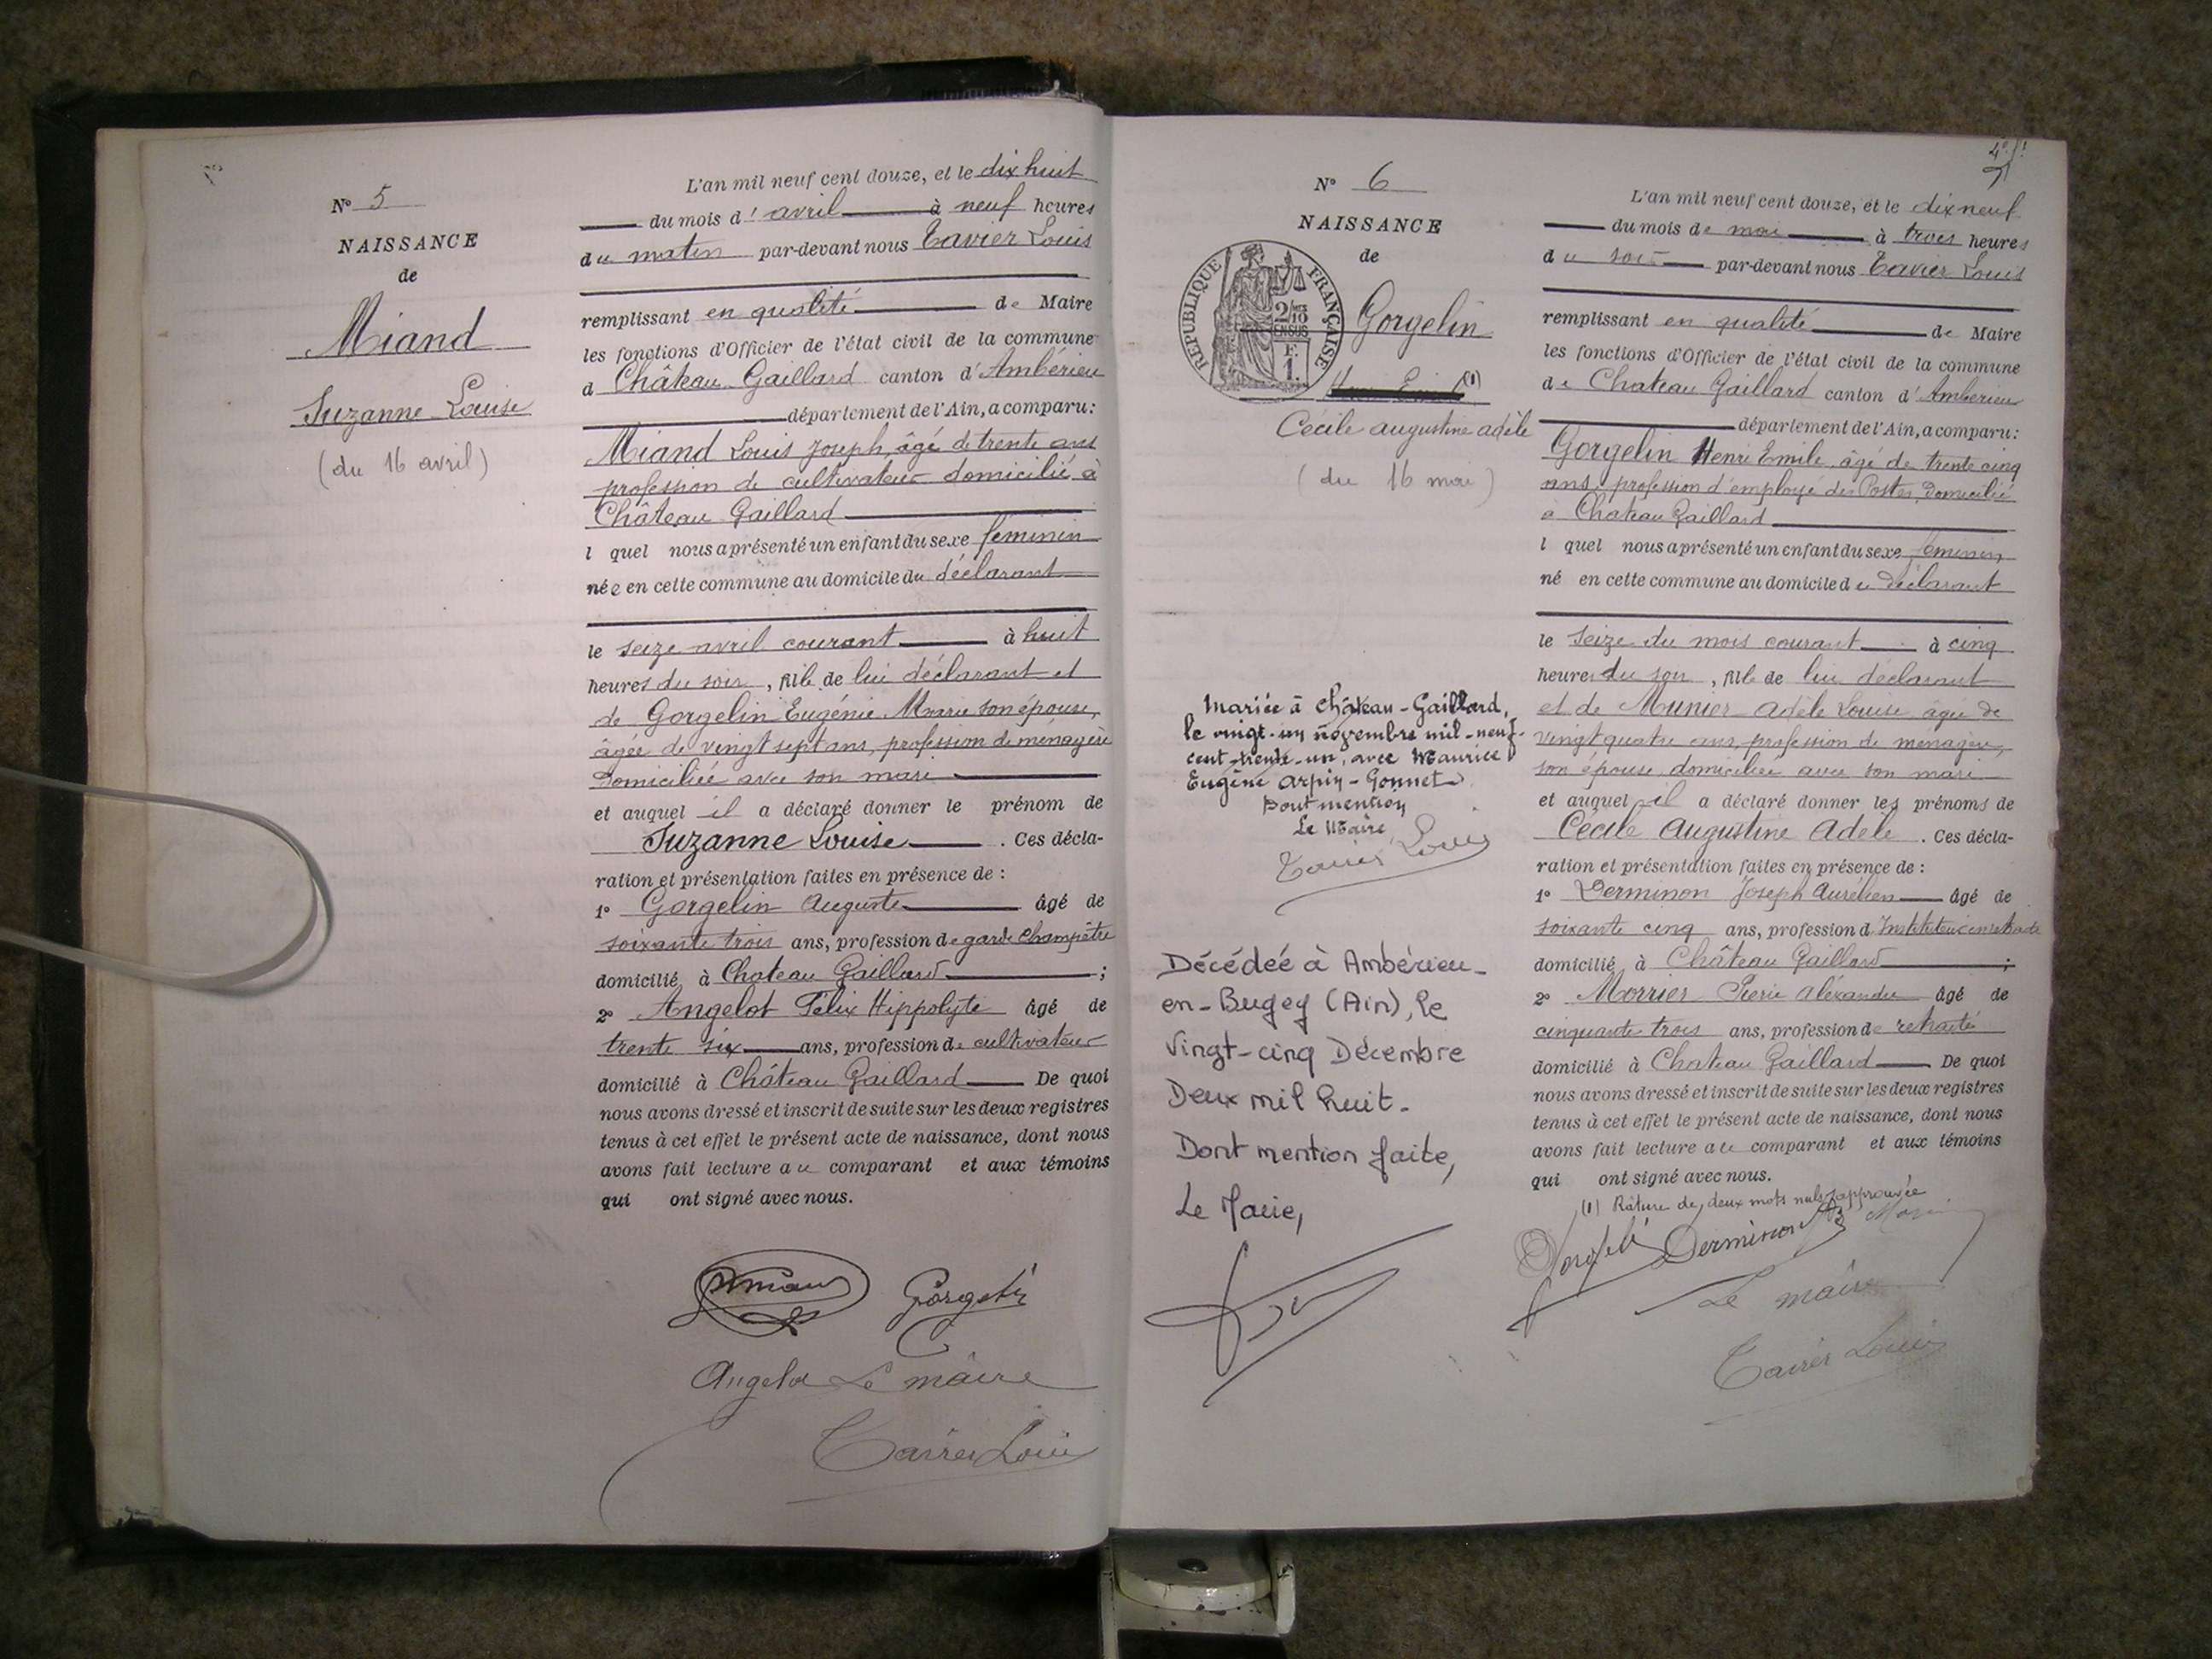 N° 5
NAISSANCE
de
Miand
Suzanne Louise
(du 16 avril)
L'an mil neuf cent douze, et le dix huit
du mois d' avril à neuf heures
du matin par-devant nous Tavier Louis
remplissant en qualité de Maire
les fonctions d'Officier de l'état civil de la commune
d Château Gaillard canton d'Ambérieu
département de l'Ain, a comparu:
Miand Louis Joseph, âgé de trente ans
profession de cultivateur domicilié à
Château Gaillard
l quel nous a présenté un enfant du sexe féminin
née en cette commune au domicile du déclarant
le seize avril courant à huit
heures du soir, fille de lui déclarant et
de Gorgelin Eugénie Marie son épouse,
âgée de vingt sept ans, profession de ménagère
domiciliée avec son mari
et auquel il a déclaré donner le prénom de
Suzanne Louise. Ces décla-
ration et présentation faites en présence de :
1° Gorgelin Auguste âgé de
soixante trois ans, profession de garde champêtre
domicilié à Chateau Gaillard ;
2° Angelot Félix Hippolyte âgé de
trente six ans, profession de cultivateur
domicilié à Château Gaillard De quoi
nous avons dressé et inscrit de suite sur les deux registres
tenus à cet effet le présent acte de naissance, dont nous
avons fait lecture au comparant et aux témoins
qui ont signé avec nous.
Gorgelin
Angelot Le maire
Tavier Louis
N° 6
NAISSANCE
de
REPUBLIQUE FRANÇAISE
2/10 EN SUS
F. 1.
Gorgelin
(1)
Cécile augustine adèle
(du 16 mai)
mariée à Château-Gaillard,
le vingt-un novembre mil-neuf-
cent-trente-un, avec Maurice
Eugène Arpin-Gonnet
Dont mention
Le Maire
Tavier Louis
Décédée à Ambérieu-
en-Bugey (Ain), le
Vingt-cinq Décembre
Deux mil huit.
Dont mention faite,
Le Maire,
L'an mil neuf cent douze, et le dix neuf
du mois de mai à trois heures
du soir par-devant nous Tavier Louis
remplissant en qualité de Maire
les fonctions d'Officier de l'état civil de la commune
de Chateau Gaillard canton d'Ambérieu
département de l'Ain, a comparu:
Gorgelin Henri Emile, âgé de trente cinq
ans, profession d'employé des Postes, domicilié
à Chateau Gaillard
l quel nous a présenté un enfant du sexe féminin,
né en cette commune au domicile du déclarant
le seize du mois courant à cinq
heures du soir, fille de lui déclarant
et de Munier Adèle Louise âgée de
vingt quatre ans, profession de ménagère,
son épouse domiciliée avec son mari
et auquel il a déclaré donner les prénoms de
Cécile Augustine Adèle. Ces décla-
ration et présentation faites en présence de :
1° Derminon Joseph Aurélien âgé de
soixante cinq ans, profession d'Instituteur en retraite
domicilié à Château Gaillard ;
2° Morrier Pierre Alexandre âgé de
cinquante trois ans, profession de retraité
domicilié à Chateau Gaillard De quoi
nous avons dressé et inscrit de suite sur les deux registres
tenus à cet effet le présent acte de naissance, dont nous
avons fait lecture au comparant et aux témoins
qui ont signé avec nous.
(1) Rature de deux mots nuls approuvée
Derminon
Le maire
Tavier Louis